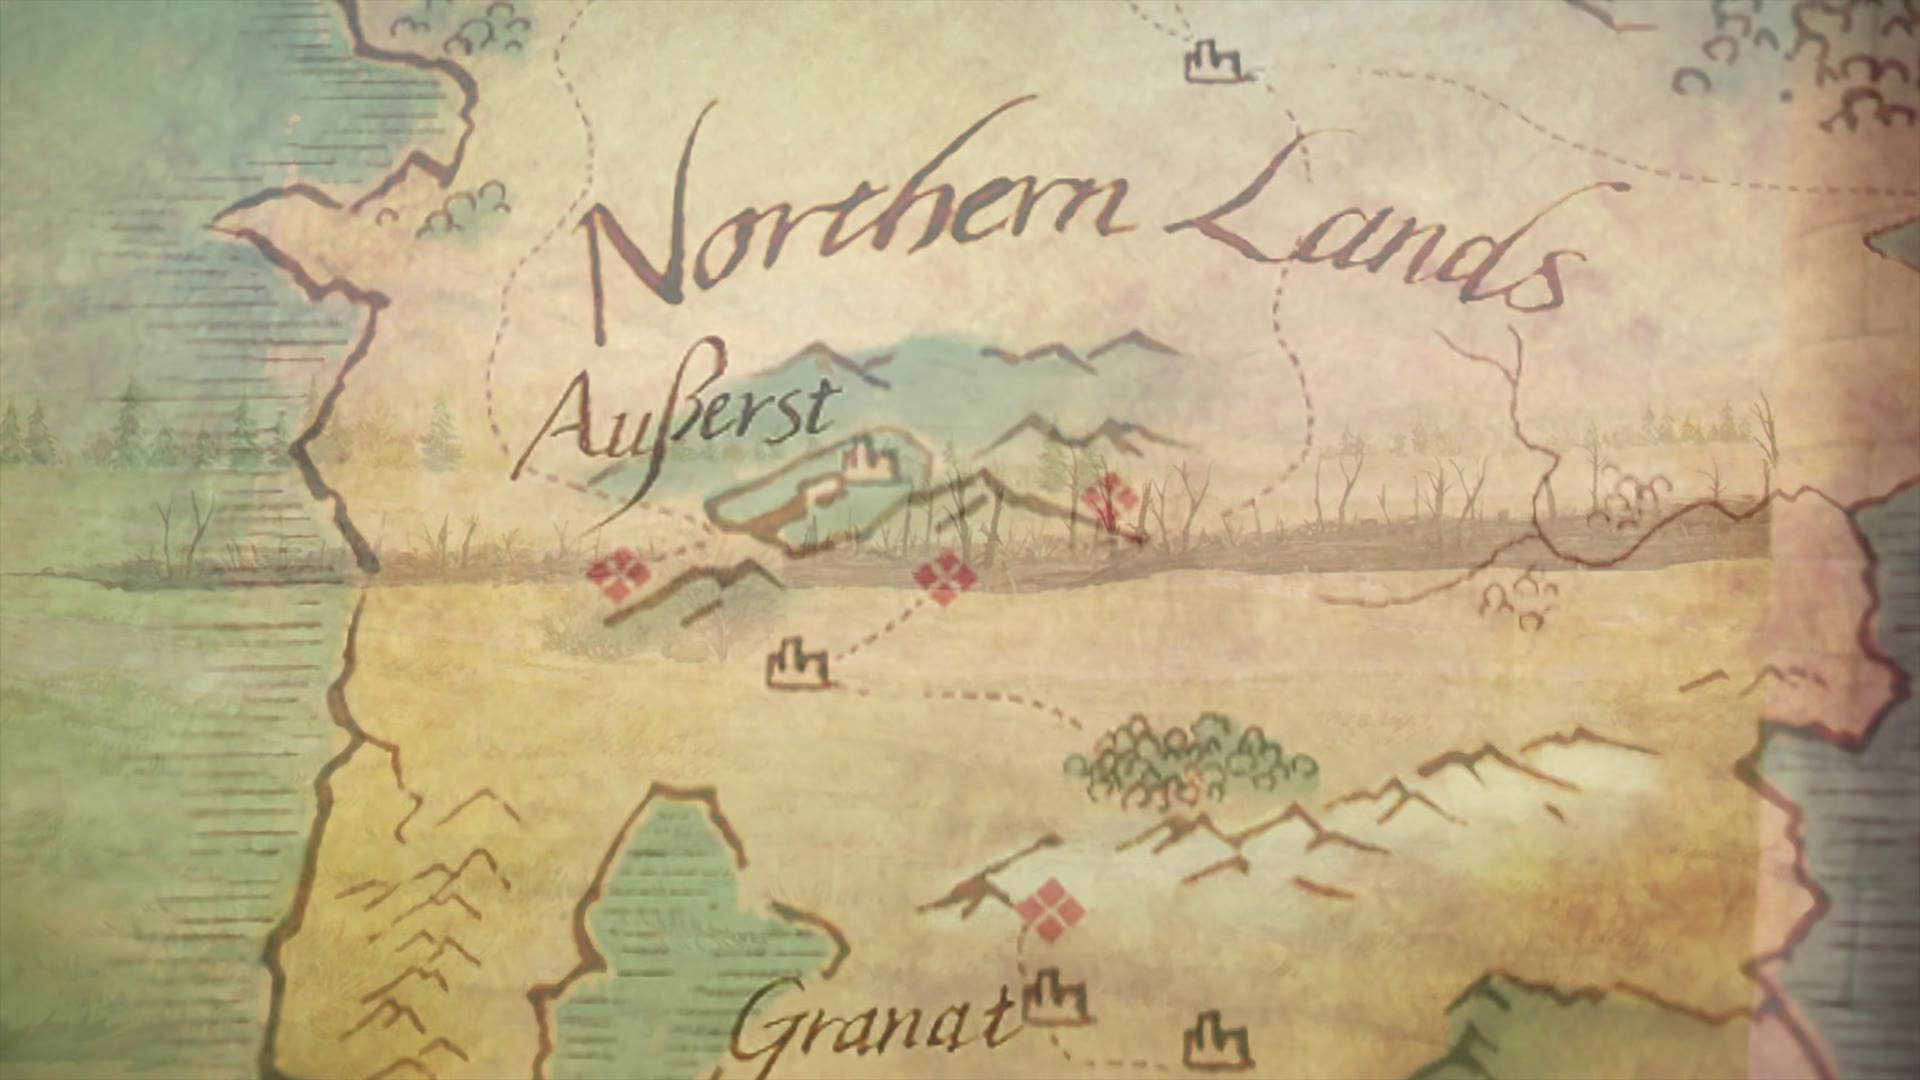 Northern Lands
Außerst
Granat